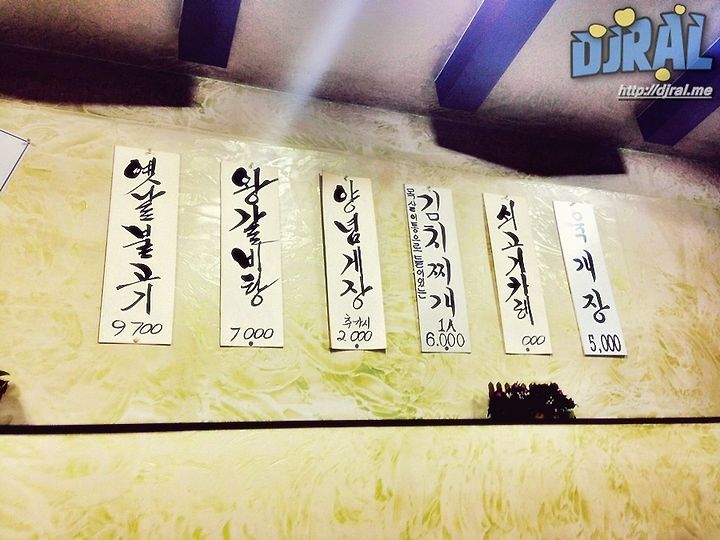 DJRAL
http://djral.me
옛날불고기
9700
왕갈비탕
7000
양념게장
추가시
2.000
김치찌개
1人
6.000
쇠고기카레
000
육개장
5,000